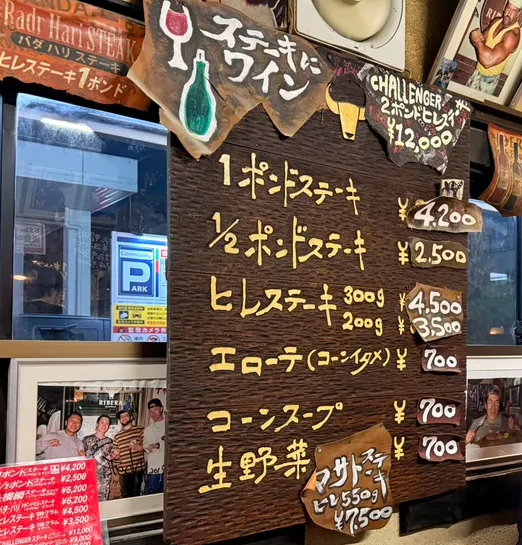 Badr Hari STEAK
バダ ハリ ステーキ
ヒレステーキ1ポンド
ステーキに
ワイン
CHALLENGER
2ポンドヒレステ
¥12,000
1ポンドステーキ ¥4,200
1/2ポンドステーキ ¥2,500
ヒレステーキ 300g ¥4,500
200g ¥3,500
エローテ(コーンイタメ) ¥700
コーンスープ ¥700
生野菜 ¥700
アサトステーキ
ヒレ550g
¥7,500
Community
P
ARK
RIBERA
ポンドステーキ ¥4,200
ポンドステーキ ¥2,500
¥6,200
¥6,200
¥4,500
¥3,500
¥12,000